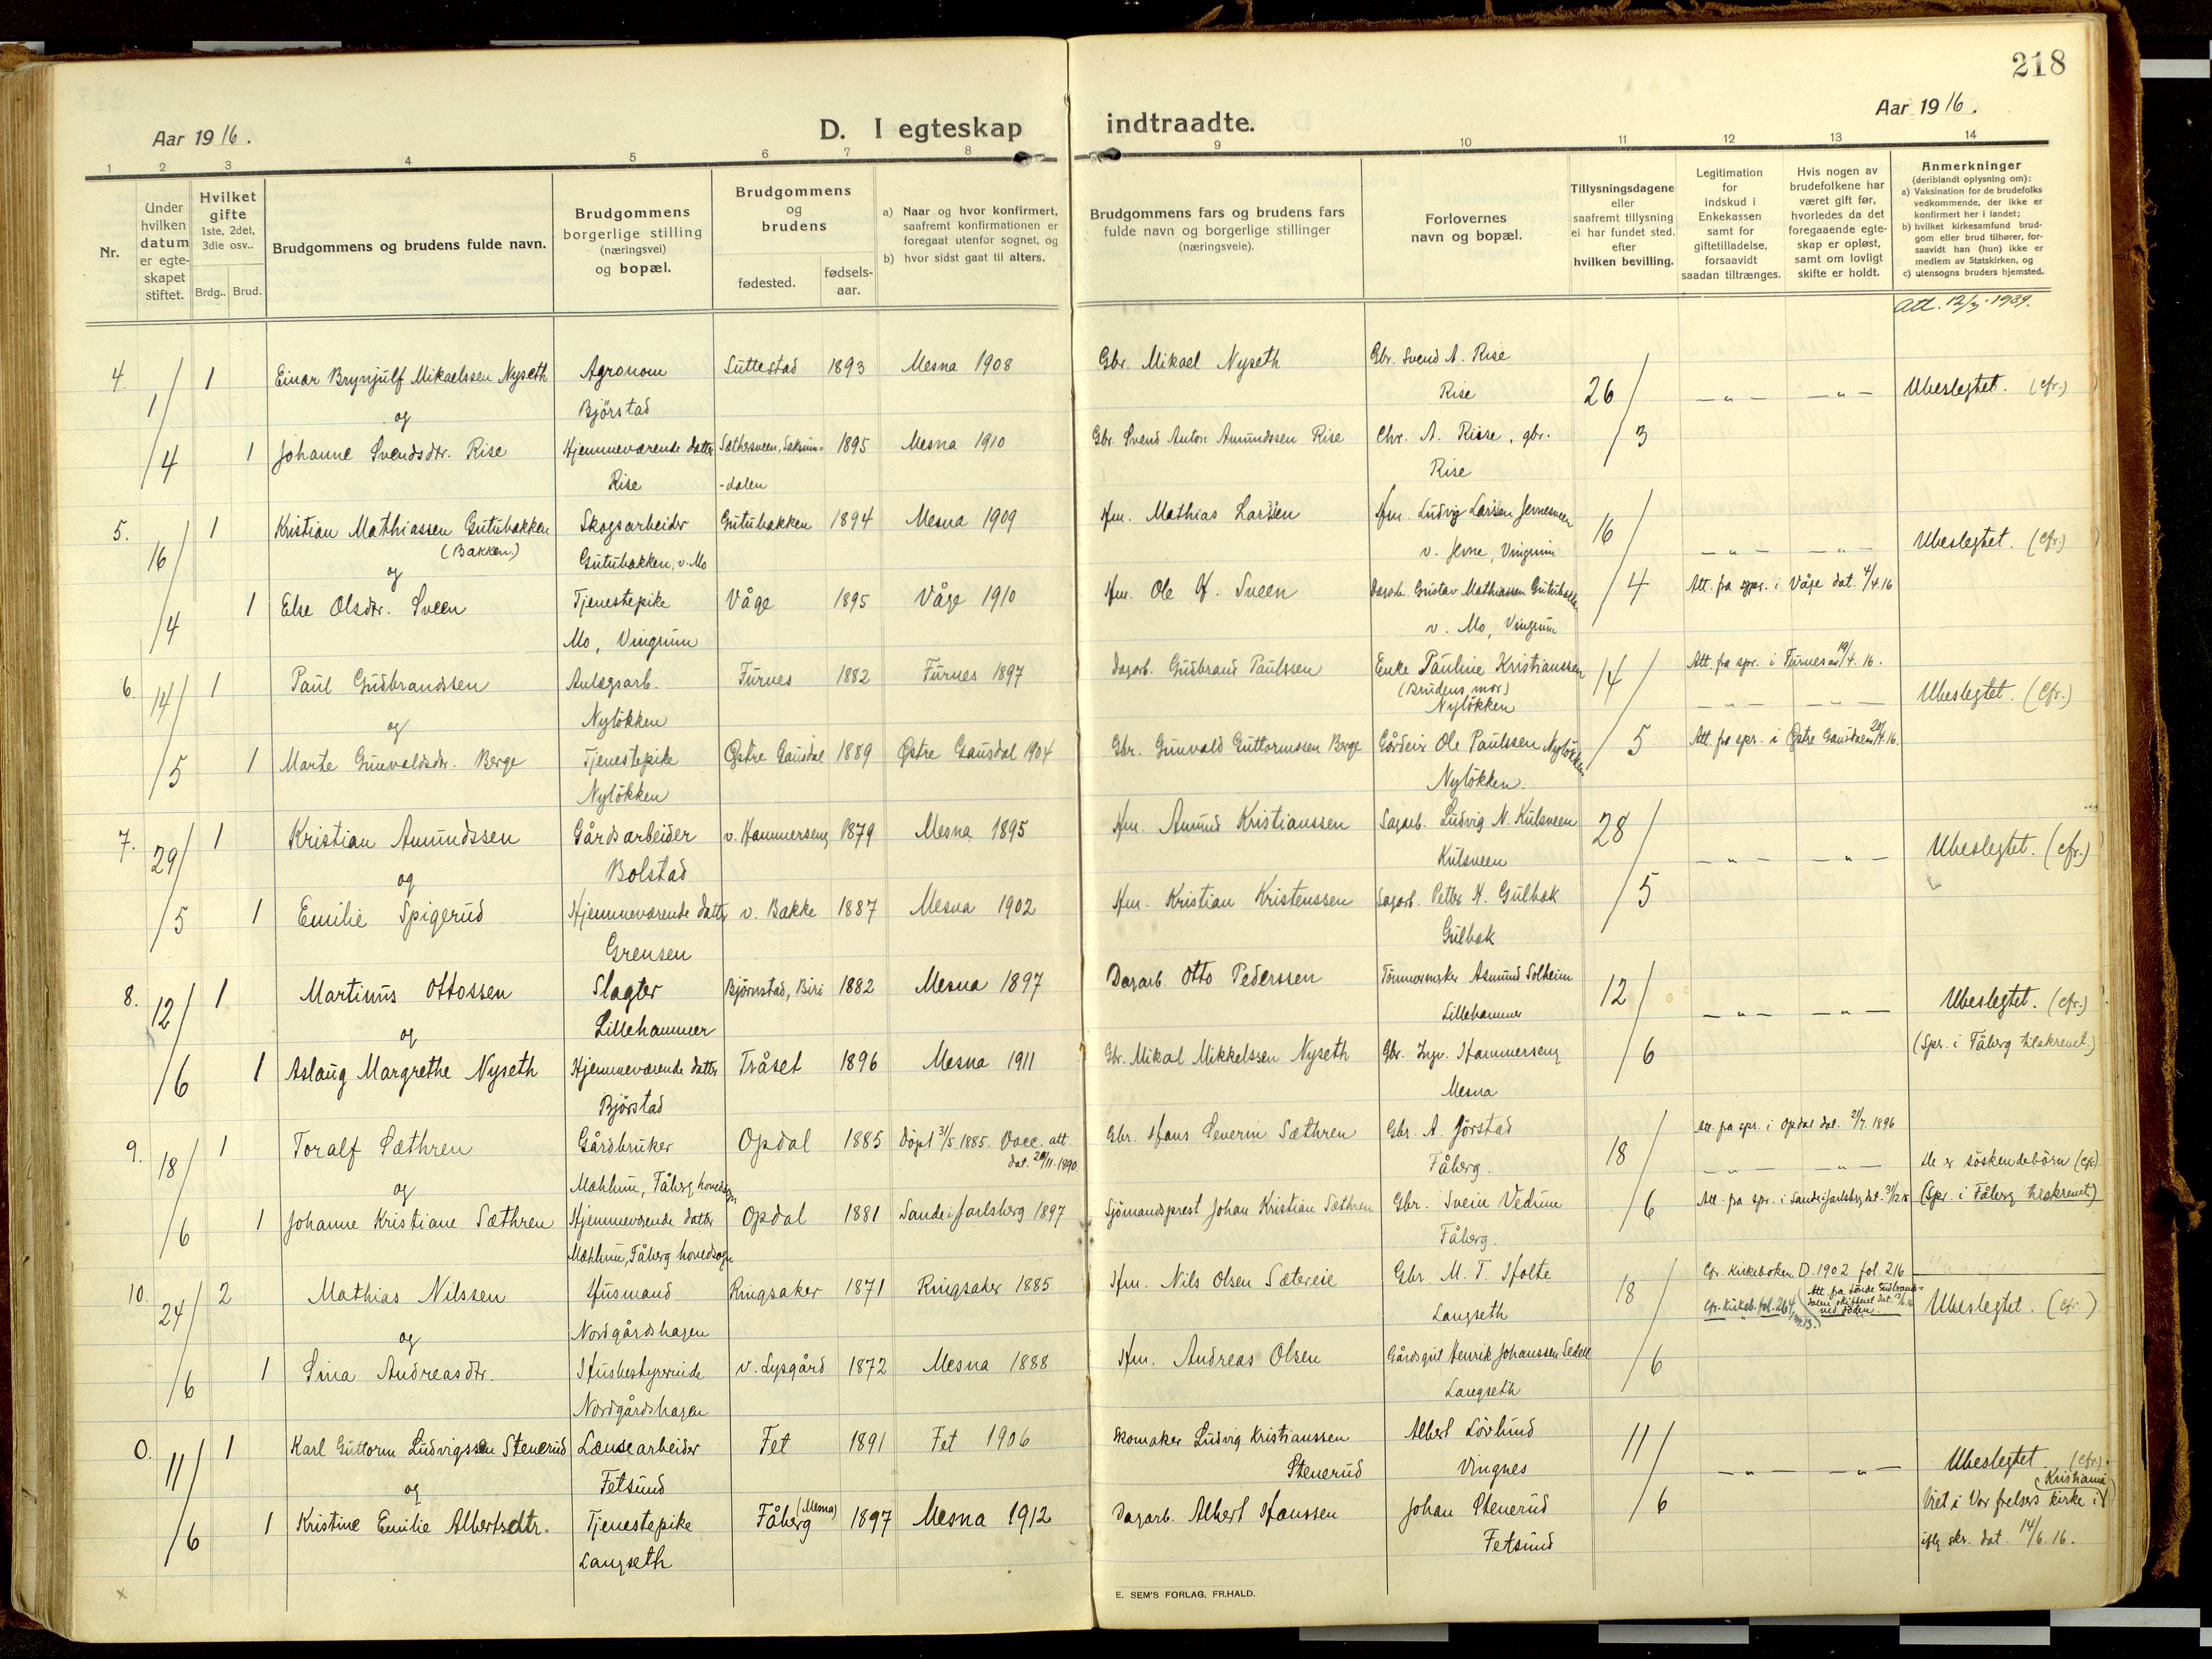 218
Aar 1916.
D. I egteskap indtraadte.
Aar 1916.
1 2 3 4 5 6 7 8 9 10 11 12 13 14
Nr.
Under hvilken datum er egteskapet stiftet.
Hvilket gifte 1ste, 2det, 3die osv..
Brdg.. Brud.
Brudgommens og brudens fulde navn.
Brudgommens borgerlige stilling (næringsvei) og bopæl.
Brudgommens og brudens
fødested.
fødselsaar.
a) Naar og hvor konfirmert, saafremt konfirmationen er foregaat utenfor sognet, og
b) hvor sidst gaat til alters.
Brudgommens fars og brudens fars fulde navn og borgerlige stillinger (næringsveie).
Forlovernes navn og bopæl.
Tillysningsdagene eller saafremt tillysning ei har fundet sted, efter hvilken bevilling.
Legitimation for indskud i Enkekassen samt for giftetilladelse, forsaavidt saadan tiltrænges.
Hvis nogen av brudefolkene har været gift før, hvorledes da det foregaaende egteskap er opløst, samt om lovligt skifte er holdt.
Anmerkninger (deriblandt oplysning om):
a) Vaksination for de brudefolks vedkommende, der ikke er konfirmert her i landet;
b) hvilket kirkesamfund brudgom eller brud tilhører, forsaavidt han (hun) ikke er medlem av Statskirken, og
c) utensogns bruders hjemsted.
Att. 12/3-1939.
4. 1/ 1 Einar Brynjulf Mikaelssen Nyseth Agronom Suttestad 1893 Mesna 1908 Gbr. Mikael Nyseth Gbr. Svend A. Rise 26/ — „ — — „ — Ubeslegtet. (cfr.)
og Bjørstad Rise
/4 1 Johanne Svendsdtr. Rise Hjemmeværende datter Sæthersveen, Saksum- 1895 Mesna 1910 Gbr. Svend Anton Amundssen Rise Chr. A. Riise, gbr. /3
Rise -dalen Rise
5. 16/ 1 Kristian Mathiassen Gutubakken Skogsarbeider Gutubakken 1894 Mesna 1909 Hm. Mathias Larssen Hm. Ludvig Larssen Jevnesveen 16/ — „ — — „ — Ubeslegtet. (cfr.)
(Bakken.) og Gutubakken, v. Mo v. Jevne, Vingrum
/4 1 Else Olsdtr. Sveen Tjenestepike Våge 1895 Våge 1910 Hm. Ole H. Sveen Dagarb. Gustav Mathiassen Gutubakken /4 Att. fra spr. i Våge dat. 4/4.16
Mo, Vingrum v. Mo, Vingrum
6. 14/ 1 Paul Gudbrandssen Anlægsarb. Furnes 1882 Furnes 1897 Dagarb. Gudbrand Paulssen Enke Pauline Kristianssen 14/ Att. fra spr. i Furnes 19/4.16. Ubeslegtet. (Cfr.)
og Nyløkken (Brudens mor) Nyløkken — „ — — „ —
/5 1 Marte Gunvaldsdr. Berge Tjenestepike Østre Gausdal 1889 Østre Gausdal 1904 Gbr. Gunvald Guttormssen Berge Gårdeier Ole Paulssen Nyløkken /5 Att. fra spr. i Østre Gausdal 20/4.16.
Nyløkken Nyløkken.
7. 29/ 1 Kristian Amundssen Gårdsarbeider v. Hammerseng 1879 Mesna 1895 Hm. Amund Kristianssen Sagarb. Ludvig N. Kulsveen 28/ — „ — — „ — Ubeslegtet. (cfr.)
og Bolstad Kulsveen
/5 1 Emilie Spigerud Hjemmeværende datter v. Bakke 1887 Mesna 1902 Hm. Kristian Kristenssen Sagarb. Petter H. Gulbak /5
Grensen Gulbak
8. 12/ 1 Martinus Ottossen Slagter Bjørnstad, Biri 1882 Mesna 1897 Dagarb. Otto Pederssen Tømmermester Asmund Solheim 12/ — „ — — „ — Ubeslegtet. (cfr.)
og Lillehammer Lillehammer
/6 1 Aslaug Margrethe Nyseth Hjemmeværende datter Tråset 1896 Mesna 1911 Gbr. Mikal Mikkelssen Nyseth Gbr. Ingv. Hammerseng /6 (Spr. i Fåberg tilskrevet.)
Bjørstad Mesna
9. 18/ 1 Toralf Sæthren Gårdbruker Opdal 1885 Døpt 31/5.1885. Vacc. att. dat. 20/11.1890. Gbr. Hans Severin Sæthren Gbr. A. Jørstad 18/ Att. fra spr. i Opdal dat. 21/7. 1896
og Mæhlum, Fåberg hovedsogn Fåberg. — „ — — „ — De er søskendebørn (cfr.)
/6 1 Johanne Kristiane Sæthren Hjemmeværende datter Opdal 1881 Sande i Jarlsberg 1897 Sjømandsprest Johan Kristian Sæthren Gbr. Svein Vedum /6 Att. fra spr. i Sande i Jarlsberg dat. (Spr. i Fåberg tilskrevet)
Mæhlum, Fåberg hovedsogn Fåberg.
10. 24/ 2 Mathias Nilssen Husmand Ringsaker 1871 Ringsaker 1885 Hm. Nils Olsen Sætereie Gbr. M. T. Holte 18/ Cfr. Kirkeboken D. 1902 fol. 216
og Nordgårdshagen Langseth Cfr. Kirkeb. fol. 264, nr. 13. Att. fra Søndre Gudbrandsdalens skifteret Ubeslegtet. (Cfr.)
/6 1 Sina Andreasdtr. Husbestyrerinde v. Lysgård 1872 Mesna 1888 Hm. Andreas Olsen Gårdsgut Henrik Johanssen /6
Nordgårdshagen Langseth
0. 11/ 1 Karl Guttorm Ludvigssen Stenerud Lænsearbeider Fet 1891 Fet 1906 Skomaker Ludvig Kristianssen Albert Løvlund 11/ — „ — — „ — Ubeslegtet. (cfr.)
og Fetsund Stenerud Vingnes Kristiania
/6 1 Kristine Emilie Albertsdtr. Tjenestepike Fåberg (Mesna) 1897 Mesna 1912 Dagarb. Albert Hanssen Johan Stenerud /6 Viet i Vor frelsers kirke i
Langseth Fetsund iflg skr. dat. 14/6.16.
x
E. SEM'S FORLAG, FR.HALD.